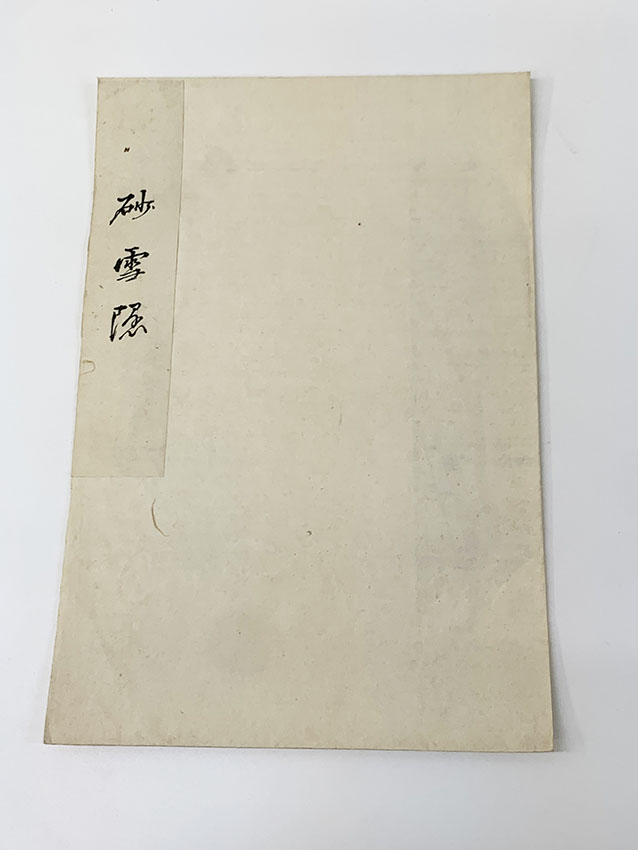 〃砂雪隠